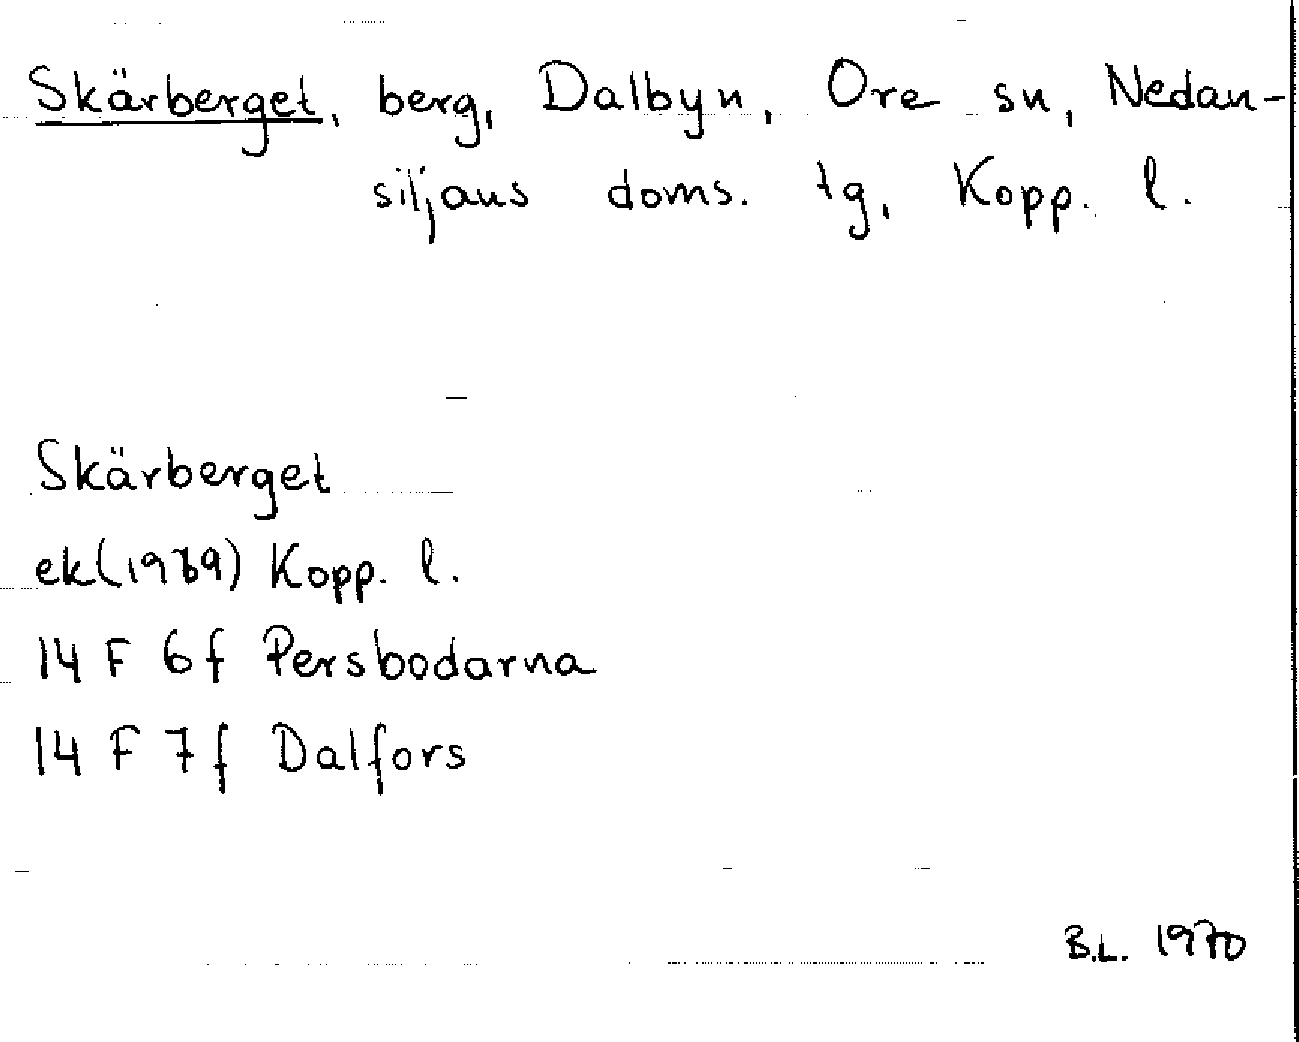 Skärberget, berg, Dalbyn, Ore sn, Nedan-
siljans doms. tg, Kopp. l.
Skärberget
ek(1969) Kopp. l.
14 F 6f Persbodarna
14 F 7f Dalfors
B.L. 1970